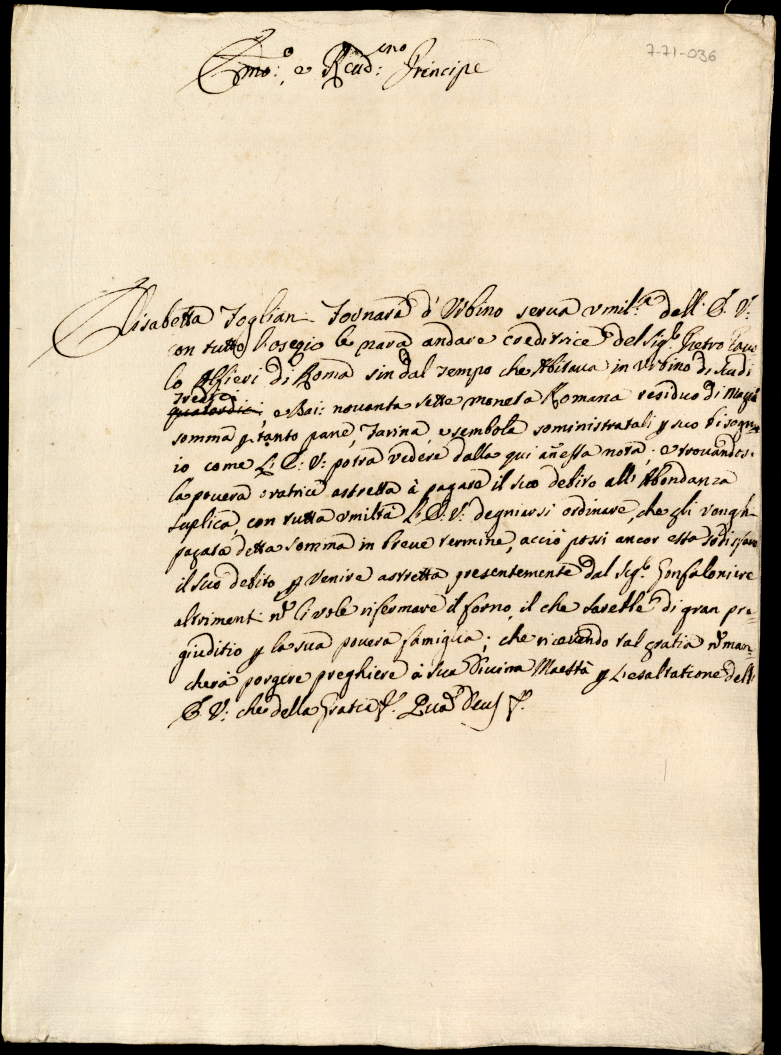 7-71-036
Em.mo: e R.eud:mo Principe
Elisabetta Foglian: Fornara d'Urbino serua vmil.ma dell' E. V:
con tutto l'osequio le narra andare creditrice del Sig.re Pietro Pauo
lo Alfieri di Roma sin dal tempo che Abitaua in Urbino di Scudi
Tredici
quatordici, e Bai: nouanta sette moneta Romana residuo di Magior
somma p tanto pane, farina, e sembola soministratali p suo bisogn
io come L' E: V: potrà vedere dalla qui añessa nota; e trouandosi
la pouera oratrice astretta à pagare il suo debito all' Abondanza
suplica con tutta vmiltà L' E. V: degniarsi ordinare, che gli venghi
pagata detta somma in breue termine, acciò possi ancor essa sodisfare
il suo debito, p venire astretta presentemente dal Sig.re Confaloniere
altriment: nõ li vole rifermare il forno, il che sarebbe di gran pre=
giuditio p la sua pouera famiglia; che riceuendo tal gratia nõ man=
cherà porgere preghiere à Sua Diuina Maestà p l'esaltatione dell'
E. V: che della Gratia &. Quam Deus &.